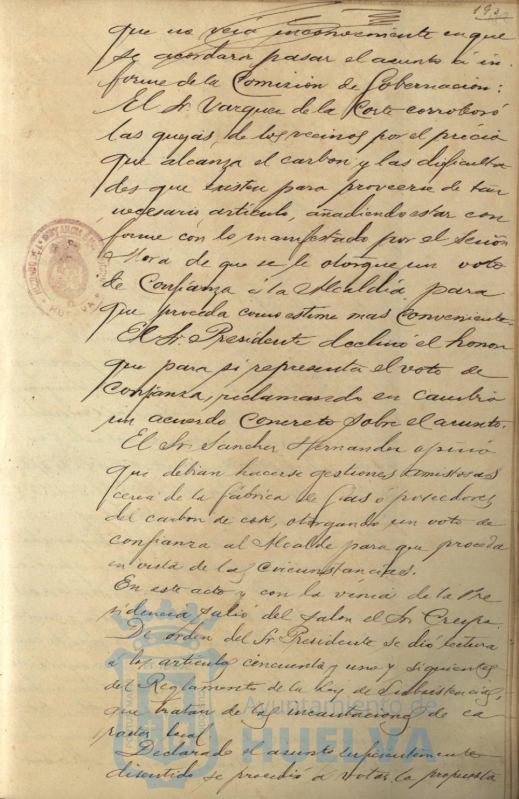 193
que no veia inconveniente en que
se acordara pasar el asunto á in-
forme de la Comision de Gobernacion:
El Sr. Vazquez de la Corte corroboró
las quejas de los vecinos por el precio
que alcanza el carbon y las dificulta
des que existen para proveerse de tan
necesario articulo, añadiendo estar con
forme con lo manifestado por el Señor
Mora de que se le otorgue un voto
de Confianza á la Alcaldia para
que proceda como estime mas conveniente.
El Sr. Presidente declinó el honor
que para si representa el voto de
confianza, reclamando en cambio
un acuerdo concreto sobre el asunto.
El Sr. Sanchez Hernandez opinó
que debian hacerse gestiones amistosas
cerca de la fábrica de Gas ó poseedores
del carbon de cok, otorgando un voto de
confianza al Alcalde para que proceda
en vista de las circunstancias.
En este acto y con la venia de la Pre
sidencia salió del salon el Sr. Crespo.
De orden del Sr. Presidente se dió lectura
á los articulos cincuenta y uno y siguientes
del Reglamento de la Ley de Subsistencias,
que tratan de las incautaciones de ca
racter local.
Declarado el asunto suficientemente
discutido se procedió á votar la propuesta
Ayuntamiento de
HUELVA